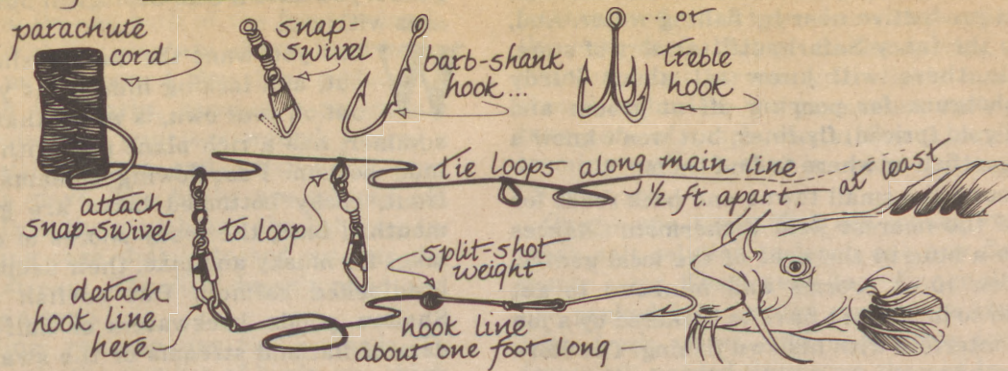 parachute
cord
snap-
swivel
barb-shank
hook...
...or
treble
hook
tie loops along main line
1/2 ft. apart at least
attach
snap-swivel
to loop
detach
hook line
here
split-shot
weight
hook line
about one foot long